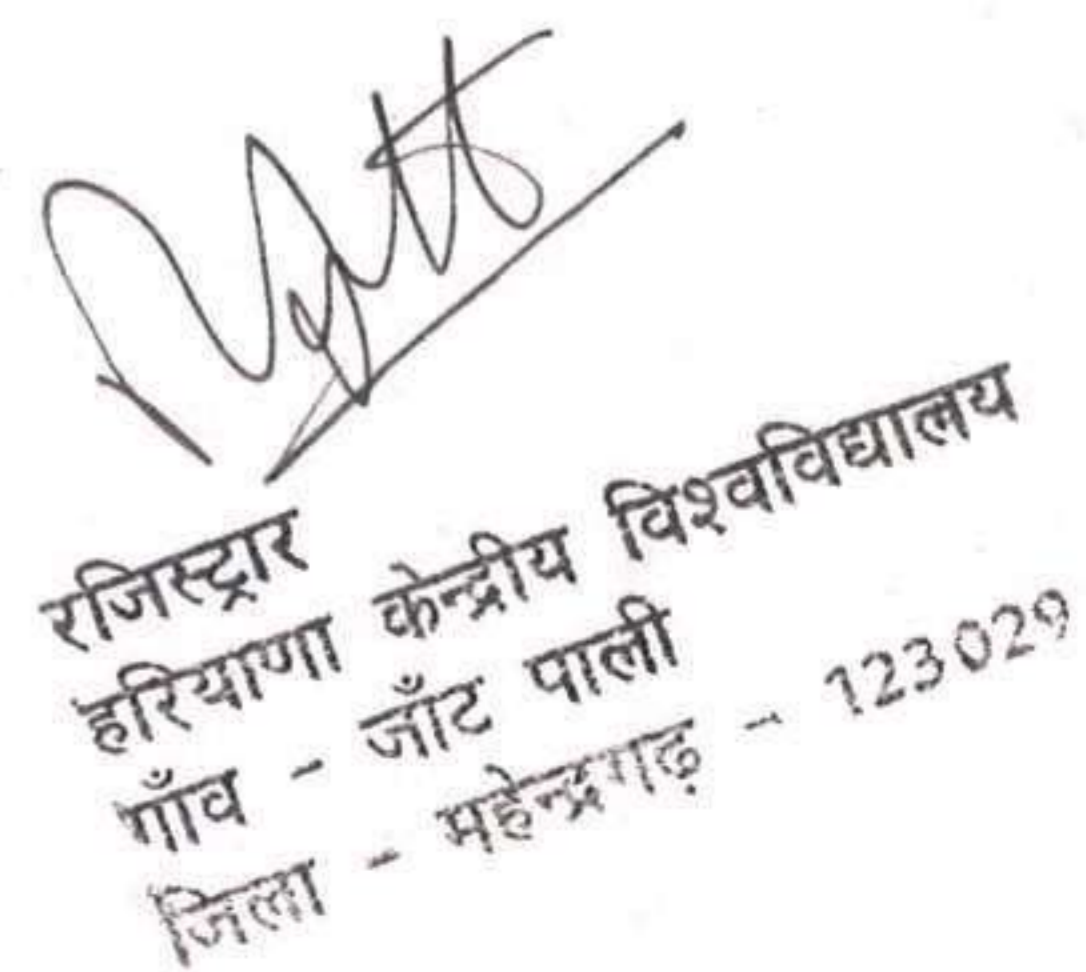 रजिस्ट्रार
हरियाणा केन्द्रीय विश्वविद्यालय
गाँव - जाँट पाली
जिला - महेन्द्रगढ़ - 123029